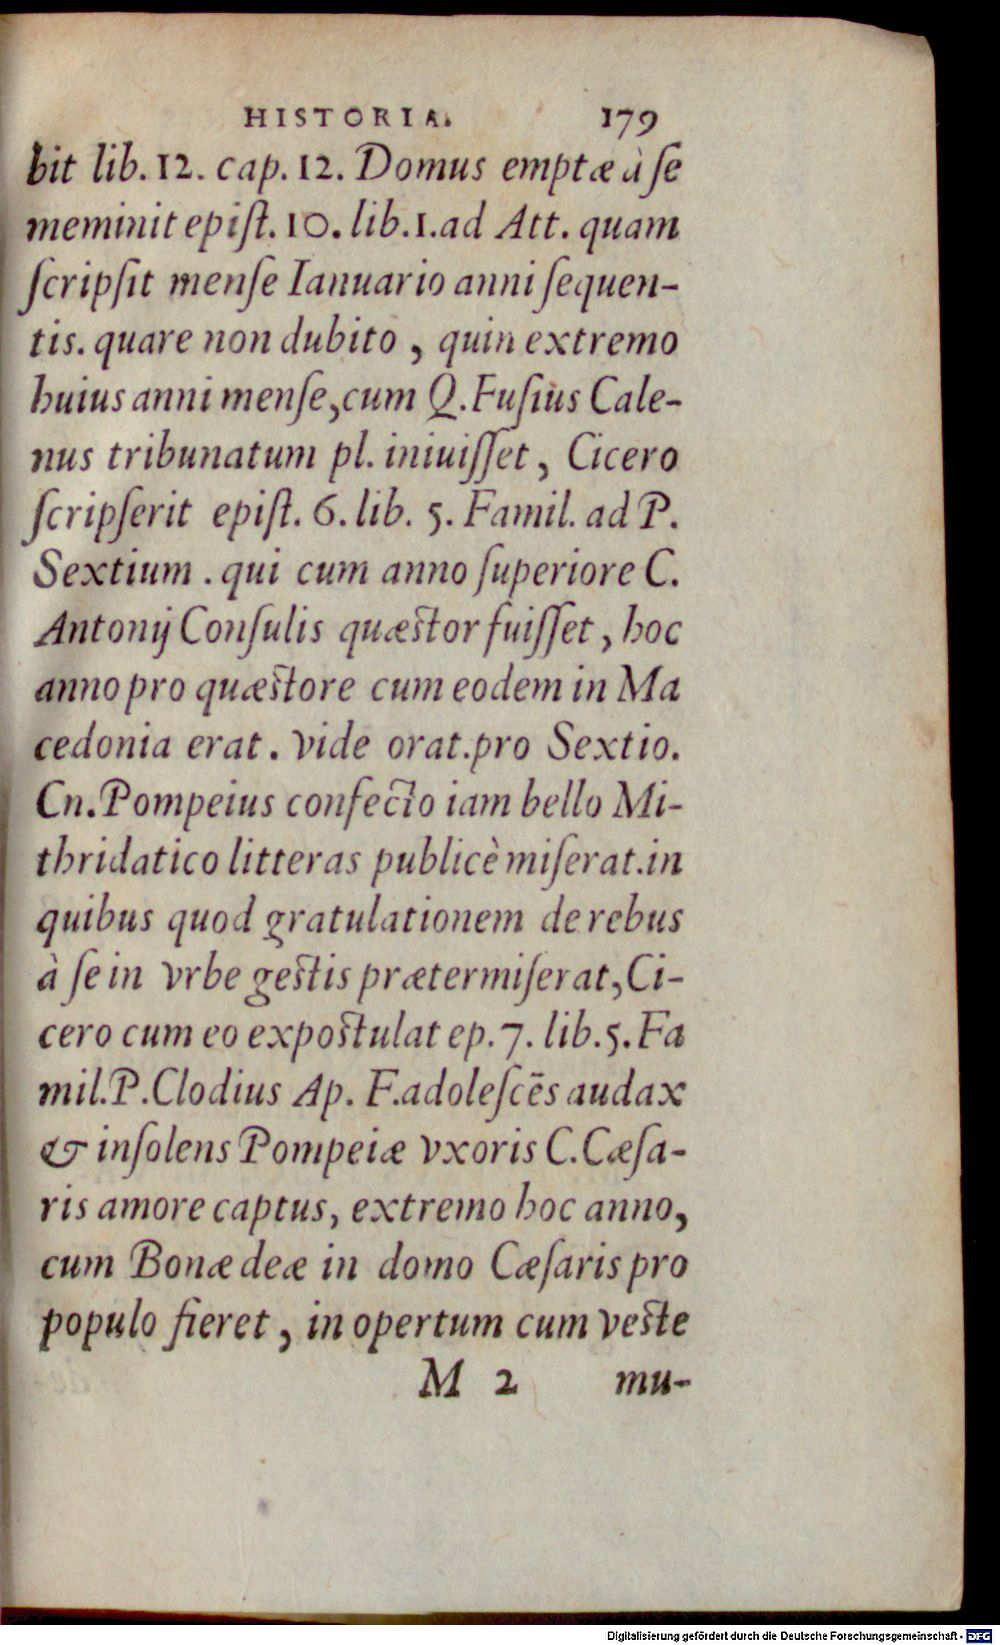 HISTORIA. 179
bit lib. 12. cap. 12. Domus emptæ à ſe
meminit epiſt. 10. lib. 1. ad Att. quam
ſcripſit menſe Ianuario anni ſequen-
tis. quare non dubito, quin extremo
huius anni menſe, cum Q. Fuſius Cale-
nus tribunatum pl. iniuiſſet, Cicero
ſcripſerit epiſt. 6. lib. 5. Famil. ad P.
Sextium. qui cum anno ſuperiore C.
Antonij Conſulis quæstor fuiſſet, hoc
anno pro quæstore cum eodem in Ma
cedonia erat. vide orat. pro Sextio.
Cn. Pompeius confecto iam bello Mi-
thridatico litteras publicè miſerat. in
quibus quod gratulationem de rebus
à ſe in vrbe gestis prætermiſerat, Ci-
cero cum eo expostulat ep. 7. lib. 5. Fa
mil. P. Clodius Ap. F. adoleſcēs audax
& inſolens Pompeiæ vxoris C. Cæſa-
ris amore captus, extremo hoc anno,
cum Bonæ deæ in domo Cæſaris pro
populo fieret, in opertum cum veste
M 2 mu-
Digitalisierung gefördert durch die Deutsche Forschungsgemeinschaft - DFG